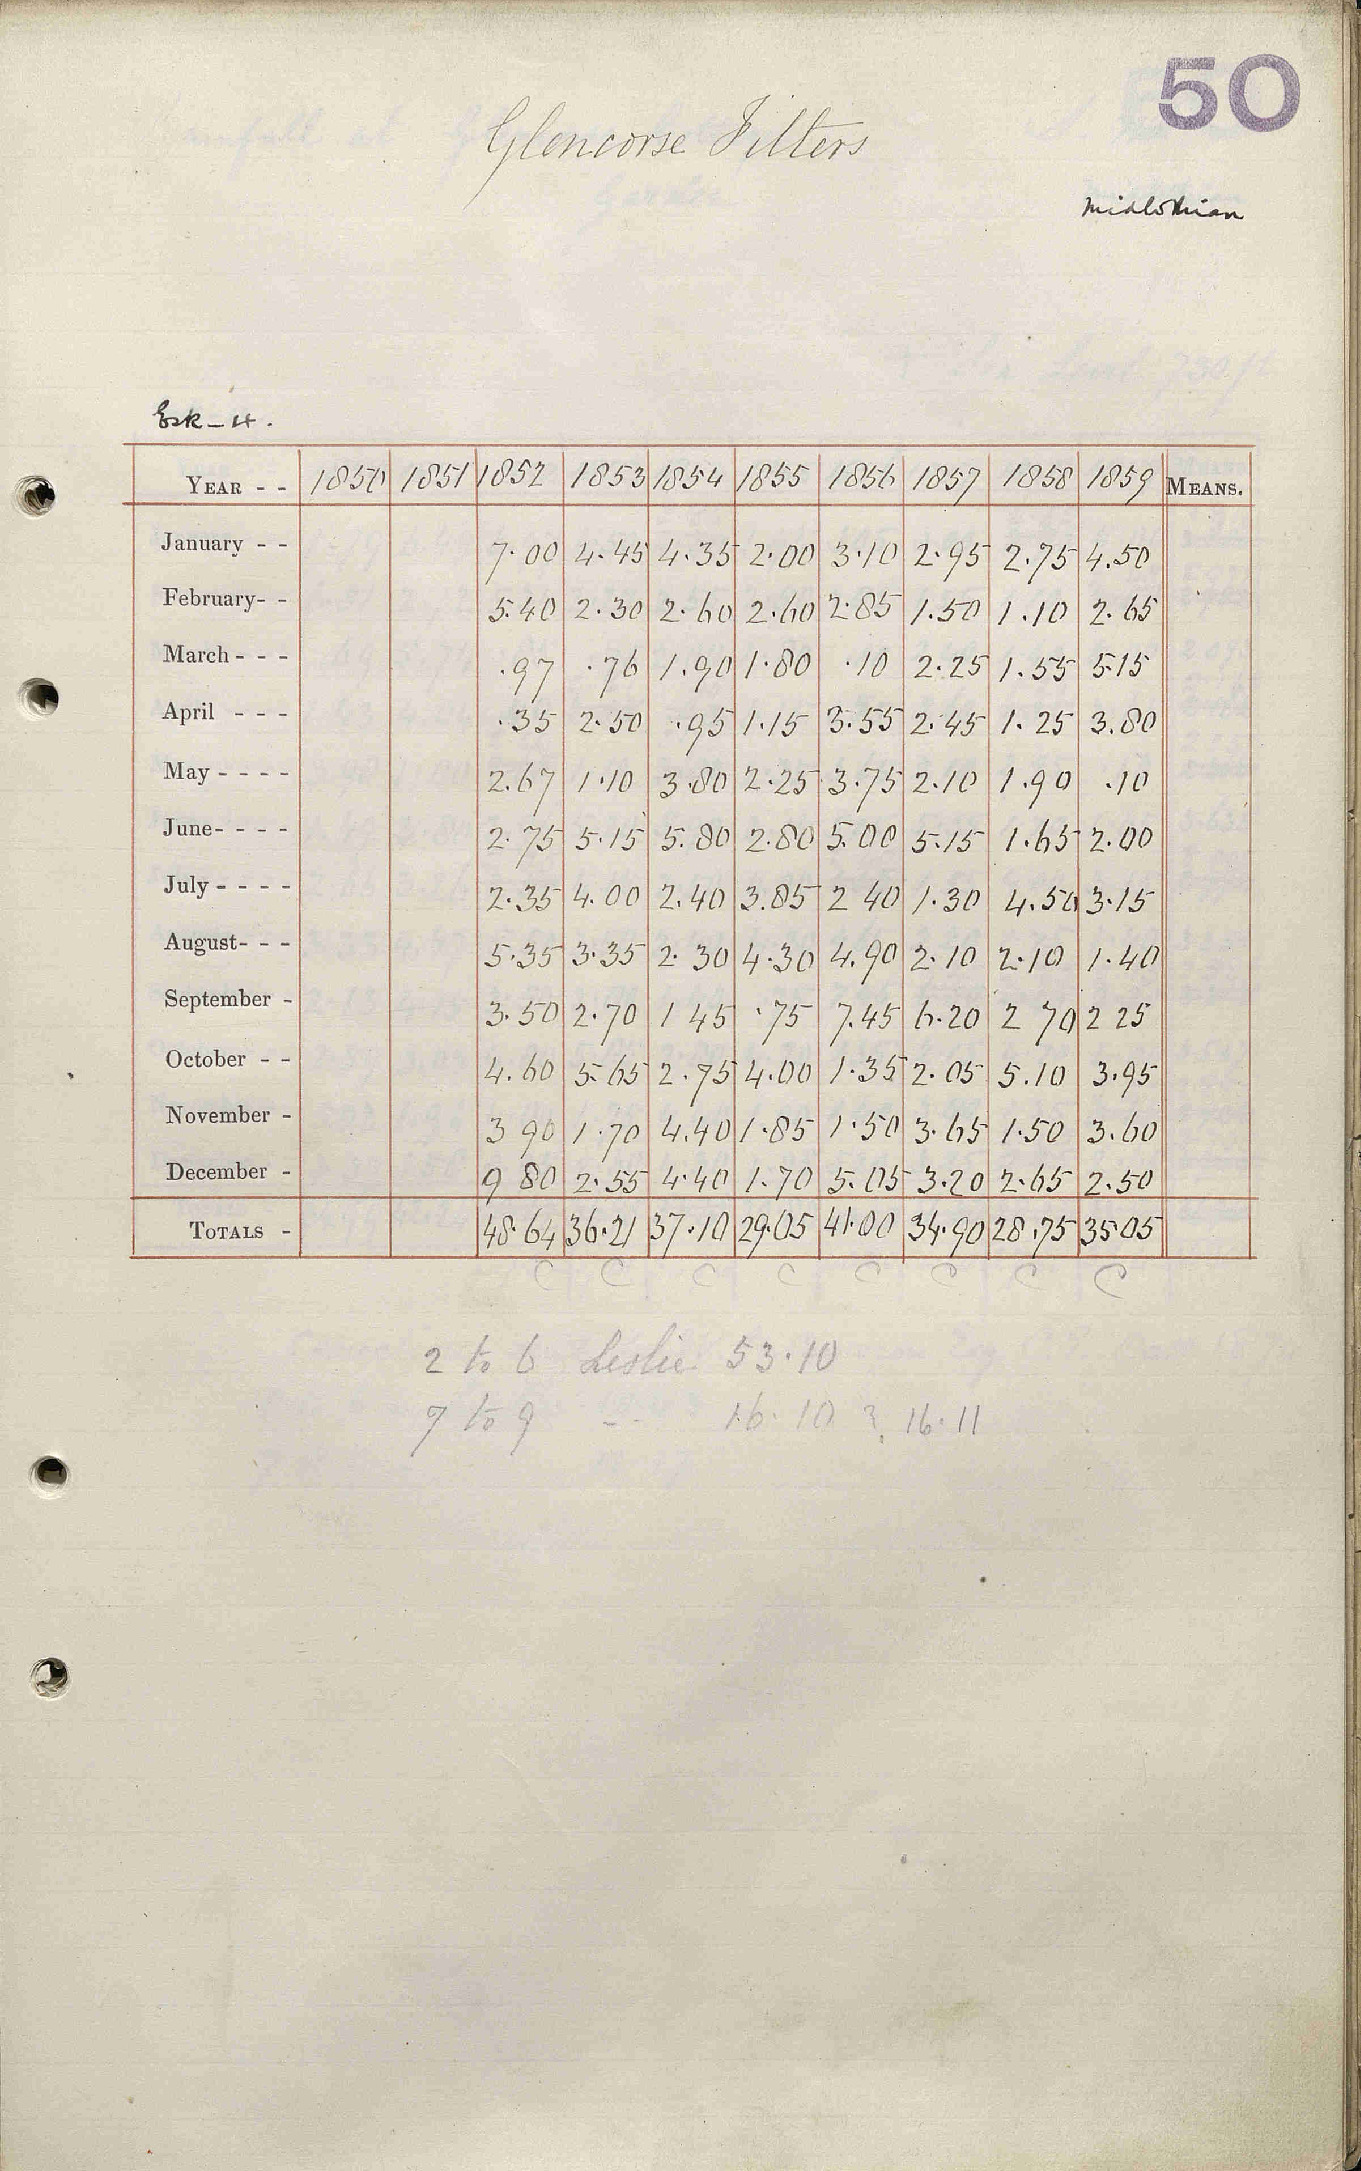 50
Glencorse Filters
Midlothian
Esk - 4.
YEAR - - 1850 1851 1852 1853 1854 1855 1856 1857 1858 1859 MEANS.
January - - 7.00 4.45 4.35 2.00 3.10 2.95 2.75 4.50
February - - 5.40 2.30 2.60 2.60 2.85 1.50 1.10 2.65
March - - - .97 .76 1.90 1.80 .10 2.25 1.55 5.15
April - - - .35 2.50 .95 1.15 3.55 2.45 1.25 3.80
May - - - - 2.67 1.10 3.80 2.25 3.75 2.10 1.90 .10
June - - - - 2.75 5.15 5.80 2.80 5.00 5.15 1.65 2.00
July - - - - 2.35 4.00 2.40 3.85 2 40 1.30 4.50 3.15
August - - - 5.35 3.35 2.30 4.30 4.90 2.10 2.10 1.40
September - 3.50 2.70 1 45 .75 7.45 6.20 2 70 2 25
October - - 4.60 5.65 2.75 4.00 1.35 2.05 5.10 3.95
November - 3 90 1.70 4.40 1.85 1.50 3.65 1.50 3.60
December - 9 80 2.55 4.40 1.70 5.05 3.20 2.65 2.50
TOTALS - 48.64 36.21 37.10 29.05 41.00 34.90 28.75 35.05
C C C C C C C C
2 to 6 Leslie 53.10
7 to 9 - - 16.10 ? 16.11